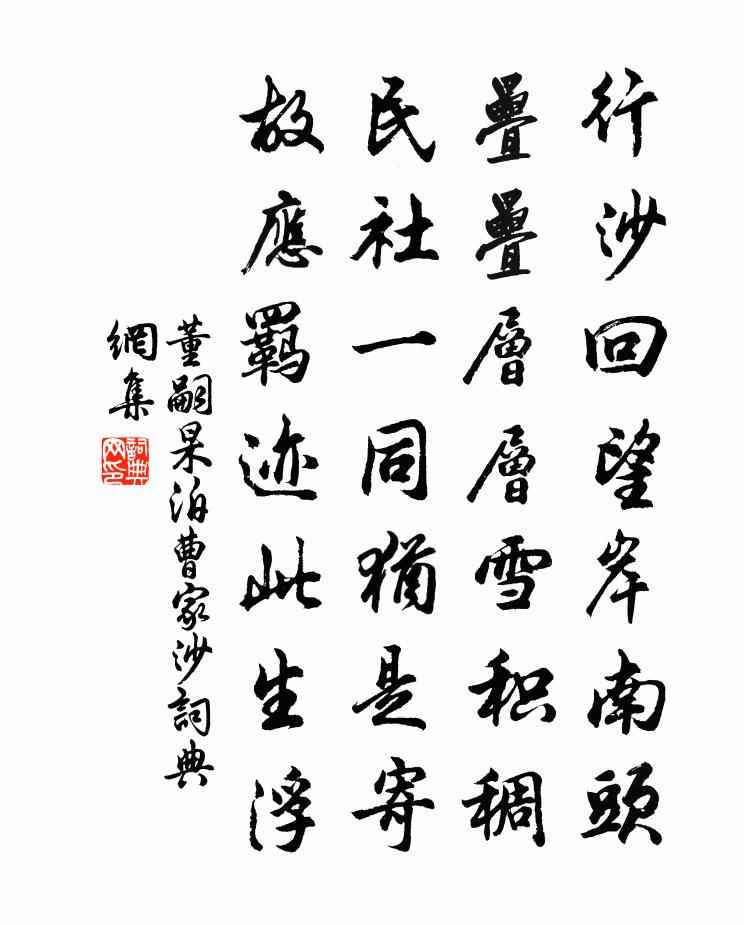 行沙回望岸南頭
疊疊層層雪积稠
民社一同猶是寄
故應羈迹此生浮
董嗣杲泊曹家沙詞典
網集
詞典网印